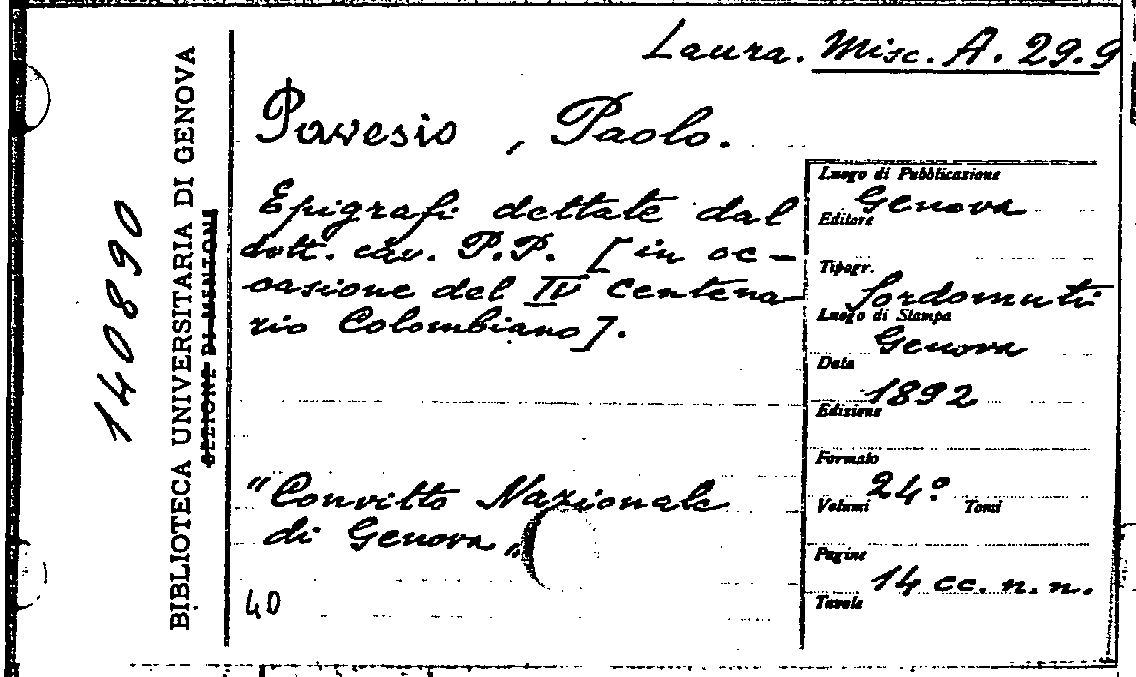 Laura. Misc. A. 29.9
Pavesio, Paolo.
Epigrafi dettate dal
dott. cav. P.P. [in oc-
casione del IV Centena-
rio Colombiano].
"Convitto Nazionale
di Genova"
40
Luogo di Pubblicazione
Genova
Editore
Tipogr.
Sordomuti
Luogo di Stampa
Genova
Data
1892
Edizione
Formato
24°
Volumi Tomi
Pagine
14 cc. n. n.
Tavole
BIBLIOTECA UNIVERSITARIA DI GENOVA
140890